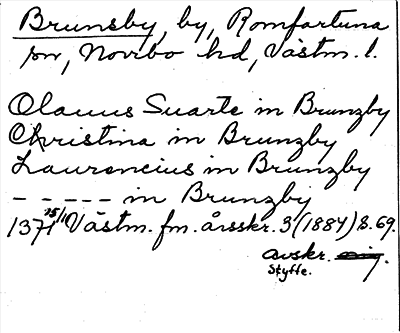 Brunsby, by, Romfartuna
sn, Norrbo hd, Västm. l.
Olauus Suarte in Brunzby
Christina in Brunzby
Laurencius in Brunzby
- - - - - in Brunzby
1371 25/11 Västm. fm. årsskr. 3 (1884) s. 69.
avskr.
Styffe.